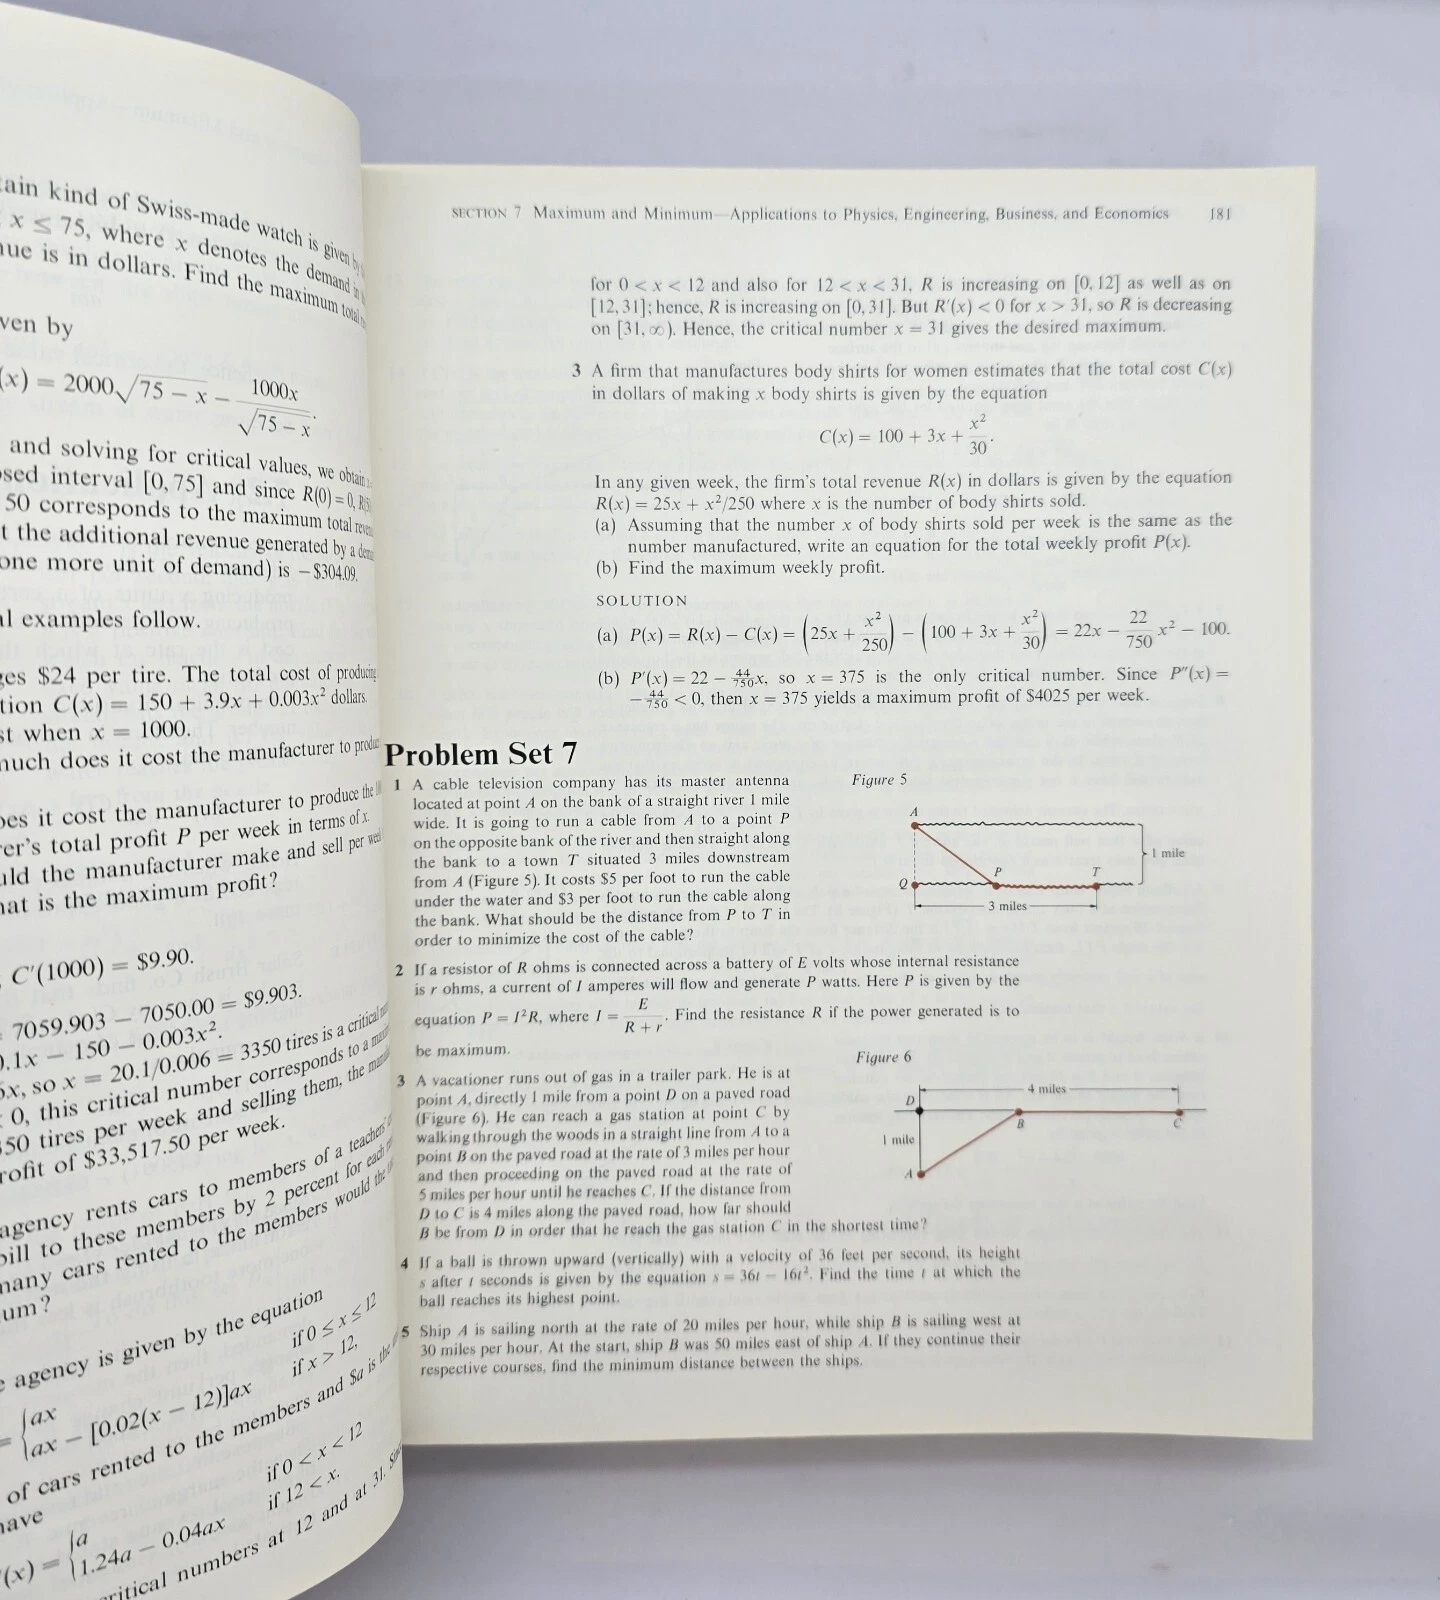 tain kind of Swiss-made watch is given by
x ≤ 75, where x denotes the demand in
nue is in dollars. Find the maximum total
ven by
(x) = 2000√75 − x − 1000x/√75 − x.
and solving for critical values, we obtain
osed interval [0, 75] and since R(0) = 0,
50 corresponds to the maximum total
t the additional revenue generated by a
one more unit of demand) is −$304.09.
al examples follow.
ges $24 per tire. The total cost of producing
tion C(x) = 150 + 3.9x + 0.003x² dollars.
st when x = 1000.
much does it cost the manufacturer to
oes it cost the manufacturer to produce the
er's total profit P per week in terms of x.
uld the manufacturer make and sell per
hat is the maximum profit?
C′(1000) = $9.90.
7059.903 − 7050.00 = $9.903.
0.1x − 150 − 0.003x².
6x, so x = 20.1/0.006 = 3350 tires is a critical
0, this critical number corresponds to a
350 tires per week and selling them, the
rofit of $33,517.50 per week.
agency rents cars to members of a teachers'
bill to these members by 2 percent for each
many cars rented to the members would the
um?
e agency is given by the equation
= {ax if 0 ≤ x ≤ 12
ax − [0.02(x − 12)]ax if x > 12,
of cars rented to the members and $a is the
have
′(x) = {a if 0 < x < 12
1.24a − 0.04ax if 12 < x.
critical numbers at 12 and at 31.
SECTION 7 Maximum and Minimum—Applications to Physics, Engineering, Business, and Economics 181
for 0 < x < 12 and also for 12 < x < 31, R is increasing on [0, 12] as well as on
[12, 31]; hence, R is increasing on [0, 31]. But R′(x) < 0 for x > 31, so R is decreasing
on [31, ∞). Hence, the critical number x = 31 gives the desired maximum.
3 A firm that manufactures body shirts for women estimates that the total cost C(x)
in dollars of making x body shirts is given by the equation
C(x) = 100 + 3x + x²/30.
In any given week, the firm's total revenue R(x) in dollars is given by the equation
R(x) = 25x + x²/250 where x is the number of body shirts sold.
(a) Assuming that the number x of body shirts sold per week is the same as the
number manufactured, write an equation for the total weekly profit P(x).
(b) Find the maximum weekly profit.
SOLUTION
(a) P(x) = R(x) − C(x) = (25x + x²/250) − (100 + 3x + x²/30) = 22x − 22/750 x² − 100.
(b) P′(x) = 22 − 44/750x, so x = 375 is the only critical number. Since P″(x) =
−44/750 < 0, then x = 375 yields a maximum profit of $4025 per week.
Problem Set 7
1 A cable television company has its master antenna
located at point A on the bank of a straight river 1 mile
wide. It is going to run a cable from A to a point P
on the opposite bank of the river and then straight along
the bank to a town T situated 3 miles downstream
from A (Figure 5). It costs $5 per foot to run the cable
under the water and $3 per foot to run the cable along
the bank. What should be the distance from P to T in
order to minimize the cost of the cable?
Figure 5
A
1 mile
Q P T
3 miles
2 If a resistor of R ohms is connected across a battery of E volts whose internal resistance
is r ohms, a current of I amperes will flow and generate P watts. Here P is given by the
equation P = I²R, where I = E/R + r. Find the resistance R if the power generated is to
be maximum.
3 A vacationer runs out of gas in a trailer park. He is at
point A, directly 1 mile from a point D on a paved road
(Figure 6). He can reach a gas station at point C by
walking through the woods in a straight line from A to a
point B on the paved road at the rate of 3 miles per hour
and then proceeding on the paved road at the rate of
5 miles per hour until he reaches C. If the distance from
D to C is 4 miles along the paved road, how far should
B be from D in order that he reach the gas station C in the shortest time?
Figure 6
4 miles
D B C
1 mile
A
4 If a ball is thrown upward (vertically) with a velocity of 36 feet per second, its height
s after t seconds is given by the equation s = 36t − 16t². Find the time t at which the
ball reaches its highest point.
5 Ship A is sailing north at the rate of 20 miles per hour, while ship B is sailing west at
30 miles per hour. At the start, ship B was 50 miles east of ship A. If they continue their
respective courses, find the minimum distance between the ships.